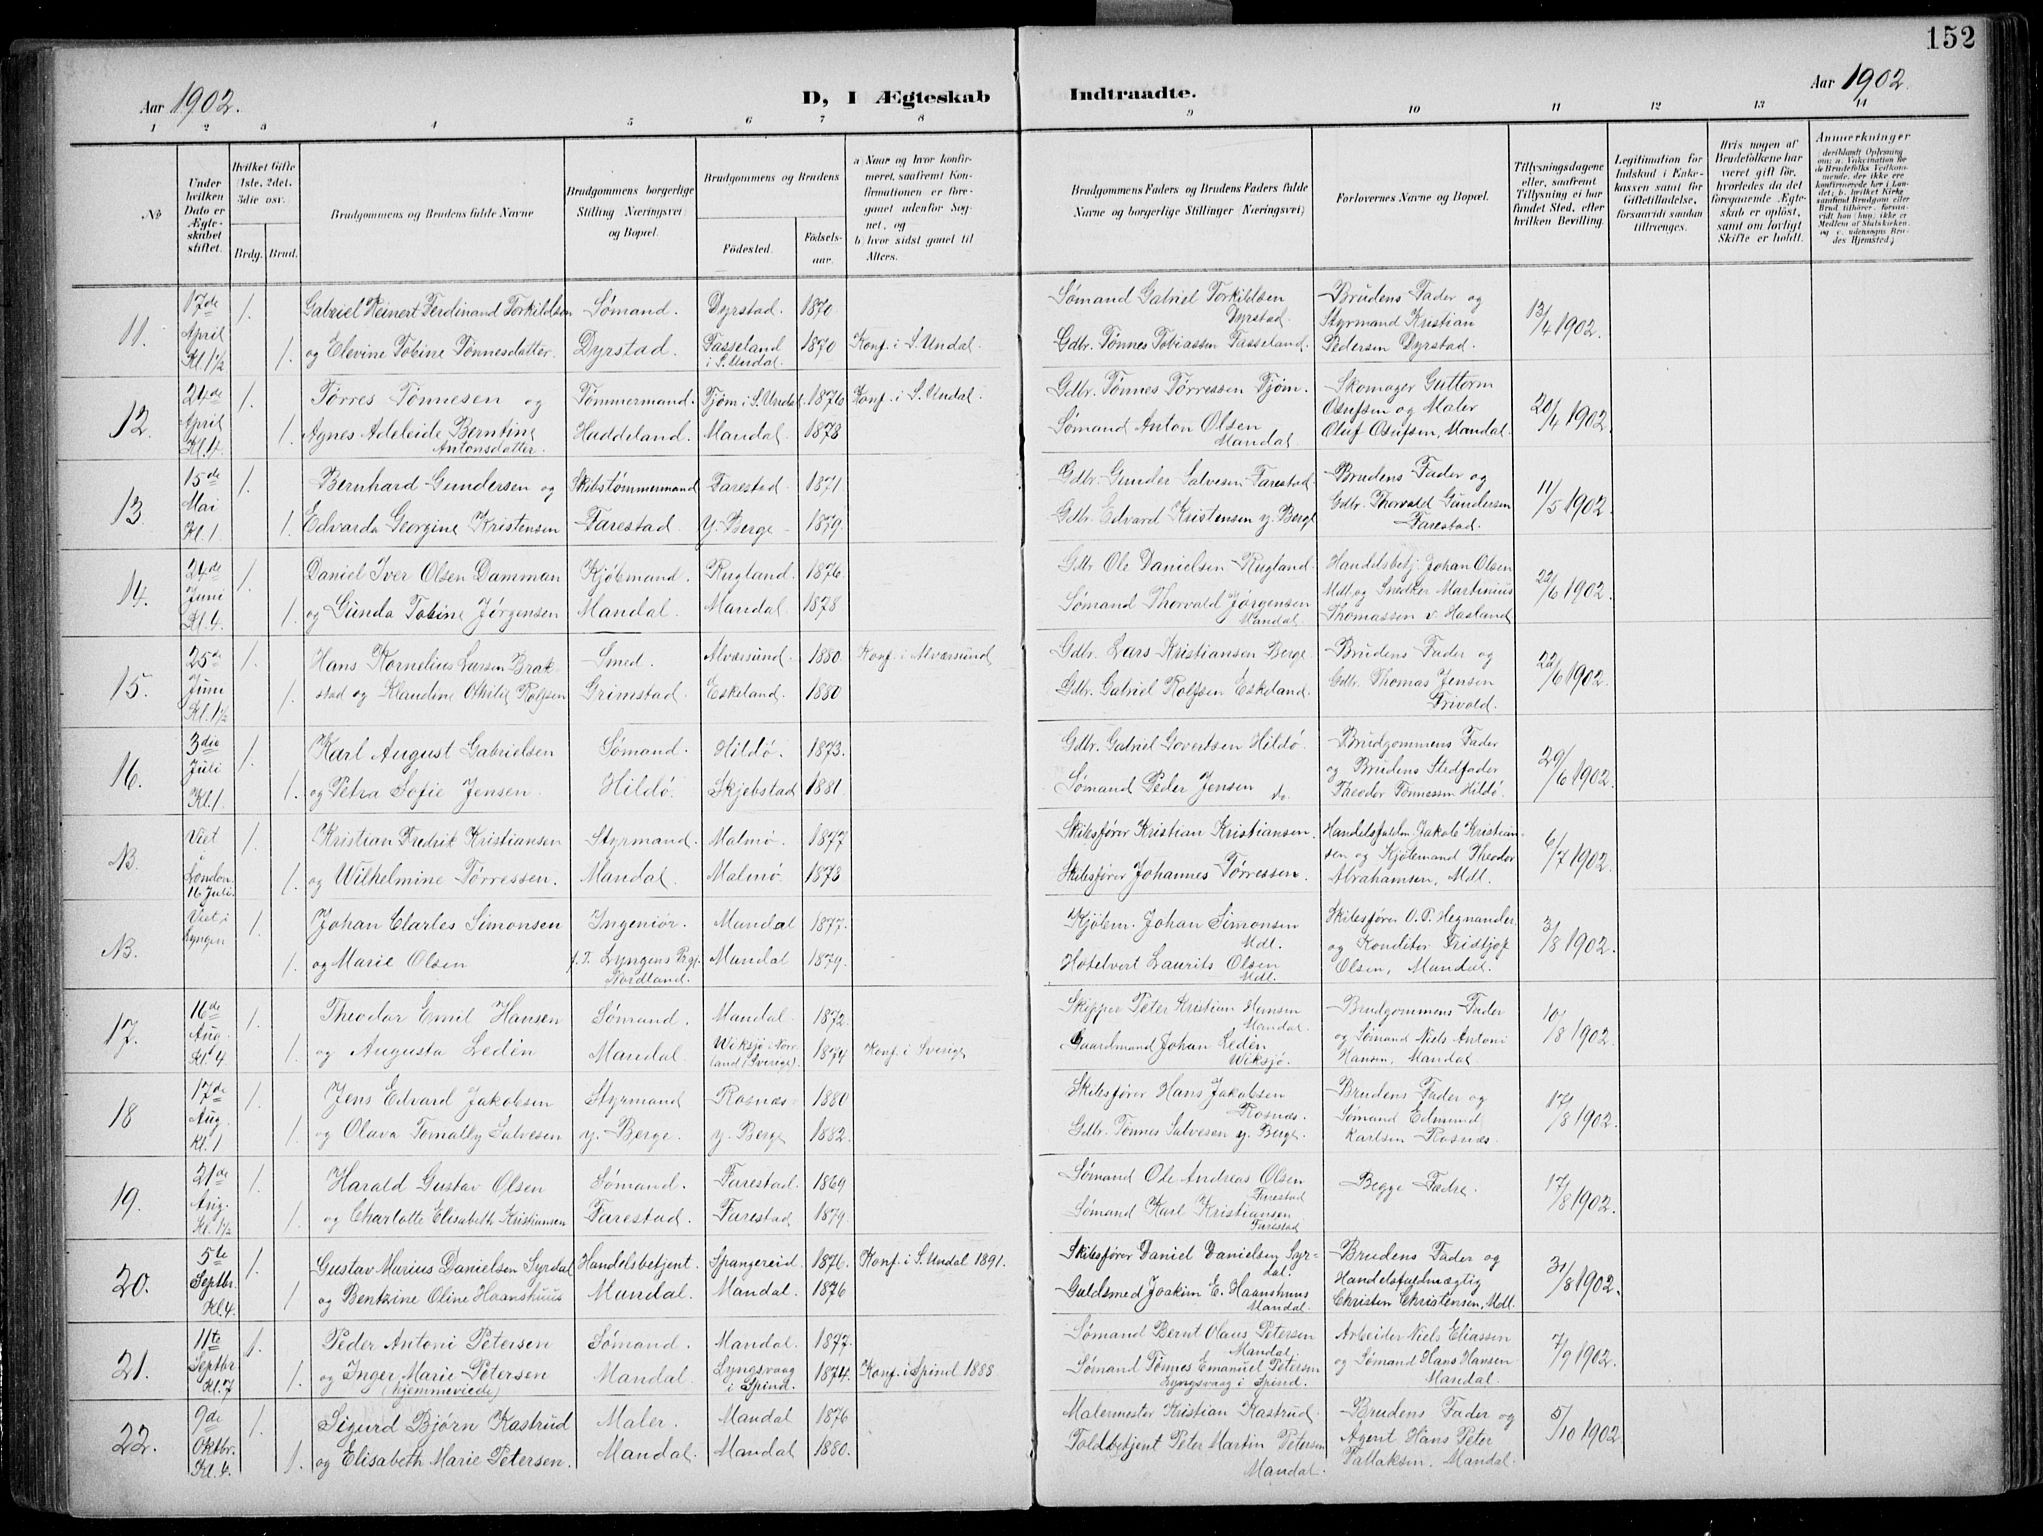 152
Aar 1902.
D, I Ægteskab Indtraadte.
Aar 1902.
1 2 3 4 5 6 7 8 9 10 11 12 13 14
No
Under hvilken Dato er Ægteskabet stiftet.
Hvilket Gifte (1ste, 2det, 3die osv.
Brdg. Brud.
Brudgommens og Brudens fulde Navne
Brudgommens borgerlige Stilling (Næringsvei) og Bopæl.
Brudgommens og Brudens
Födested.
Födsels-aar.
a) Naar og hvor konfirmeret, saafremt Konfirmationen er foregaaet udenfor Sognet, og
b) hvor sidst gaaet til Alters.
Brudgommens Faders og Brudens Faders fulde Navne og borgerlige Stillinger (Næringsvei)
Forlovernes Navne og Bopæl.
Tillysningsdagene eller, saafremt Tillysning ei har fundet Sted, efter hvilken Bevilling.
Legitimation for Indskud i Enkekassen samt for Giftetilladelse, forsaavidt saadan tiltrænges.
Hvis nogen af Brudefolkene har været gift før, hvorledes da det foregaaende Ægteskab er opløst, samt om lovligt Skifte er holdt.
Anmerkninger
11. 17de April Kl. 1½ 1. Gabriel Reinert Ferdinand Torkildsen Sømand. Dyrstad. 1870 Sømand Gabriel Torkildsen Dyrstad. Brudens Fader og Styrmand Kristian Pedersen Dyrstad. 13/4 1902.
1. og Elevine Tobine Tønnesdatter. Dyrstad. Fasseland i S. Undal. 1870 Konf. i S. Undal. Gdbr. Tønnes Tobiassen Fasseland.
12. 24de April Kl. 4. 1. Tørres Tønnesen og Tømmermand. Tjøm i S. Undal. 1876 Konf. i S. Undal. Gdbr. Tønnes Tørressen Tjøm. Skomager Guttorm Osufsen og Maler Oluf Osufsen, Mandal. 20/4 1902.
1. Agnes Adeleide Berntine Antonsdatter. Haddeland. Mandal. 1878 Sømand Anton Olsen Mandal.
13. 15de Mai Kl. 1. 1. Bernhard Gundersen og Skibstømmermand Farestad. 1871. Gdbr. Gunder Salvesen Farestad. Brudens Fader og Gdbr. Thorvald Gundersen Farestad. 11/5 1902.
1. Edvarda Georgine Kristensen Farestad. y. Berge 1879. Gdbr. Edvard Kristensen y. Berge
14. 24de Juni Kl. 4. 1. Daniel Iver Olsen Damman Kjøbmand. Rugland. 1876 Gdbr Ole Danielsen Rugland Handelsbetj. Johan Olsen Mdl. og Snedker Martinius Thomassen v. Hasland 22/6 1902.
1. og Gunda Tobine Jørgensen Mandal. Mandal. 1878 Sømand Thorvald Jørgensen Mandal.
15. 25de Juni Kl. 1½ 1. Hans Kornelius Larsen Brakstad og Klaudine Othilie Rolfsen Smed. Alværsund. 1880. Konf. i Alværsund Gdbr. Lars Kristiansen Berge Brudens Fader og Gdbr. Thomas Jensen Frivold. 22/6 1902.
1. Grimstad. Eskeland. 1880 Gdbr. Gabriel Rolfsen Eskeland.
16. 3die Juli Kl. 1. 1. Karl August Gabrielsen Sømand. Hildø. 1873. Gdbr. Gabriel Govertsen Hildø. Brudgommens Fader og Brudens Stedfader Theodor Tønnessen Hildø. 29/6 1902.
1. og Petra Sofie Jensen. Hildø. Skjebstad 1881. Sømand Peder Jensen do.
NB. Viet i London. 16 Juli. 1. Kristian Fredrik Kristiansen Styrmand. Malmø. 1877 Skibsfører Kristian Kristiansen. Handelsfuldm. Jakob Kristiansen og Kjøbmand Theodor Abrahamsen, Mdl. 6/7 1902.
1. og Wilhelmine Tørressen. Mandal. Malmø. 1873 Skibsfører Johannes Tørressen.
NB. Viet i Lyngen 1. Johan Charles Simonsen Ingeniør. Mandal 1877. Kjøbm. Johan Simonsen Mdl. Skibsfører O. P. Hegnander og Konditor Fridtjof Olsen, Mandal. 3/8 1902.
1. og Marie Olsen f. T. Lyngens Prgj. Nordland. Mandal 1879. Hotelvert Laurits Olsen Mdl.
17. 16de Aug. Kl. 4 1. Theodor Emil Hansen Sømand. Mandal. 1872. Skipper Peter Kristian Hansen Mandal. Brudgommens Fader og Sømand Niels Antoni Hansen, Mandal. 10/8 1902.
1. og Augusta Ledén Mandal. Wiksjö. Norland (Sverige). 1874 Konf. i Sverige Gaardmand Johan Ledén Wiksjö.
18 17de Aug. Kl. 1 1. Jens Edvard Jakobsen Styrmand Rosnæs. 1880 Skibsfører Hans Jakobsen Rosnæs. Brudens Fader og Sømand Edmund Karlsen Rosnæs. 17/8 1902.
1. og Olava Tomally Salvesen y. Berge. y. Berge 1882. Gdbr. Tønnes Salvesen y. Berge.
19. 21de Aug. Kl. 1½ 1. Harald Gustav Olsen Sømand. Farestad. 1869 Sømand Ole Andreas Olsen Farestad Begge Fædre. 17/8 1902.
1. og Charlotte Elisabeth Kristiansen Farestad. Farestad. 1879. Sømand Karl Kristiansen Farestad
20. 5te Septbr. Kl. 4. 1. Gustav Marius Danielsen Syrdal Handelsbetjent. Spangereid. 1876. Konf. i S. Undal 1891. Skibsfører Daniel Danielsen Syrdal. Brudens Fader og Handelsfuldmægtig Christen Christensen, Mdl. 31/8 1902.
1 og Bentzine Oline Haanshuus Mandal. Mandal. 1876 Guldsmed Joakim E. Haanshuus Mandal.
21. 11te Septbr Kl. 7 1. Peder Antoni Petersen Sømand. Mandal 1877. Sømand Bernt Olaus Petersen Mandal. Arbeider Niels Eliassen og Sømand Hans Hansen Mandal. 7/9 1902.
1. og Inger Marie Petersen (hjemmeviede) Mandal. Lyngsvaag i Spind. 1874. Konf. i Spind 1888 Sømand Tønnes Emanuel Petersen Lyngsvaag i Spind.
22. 9de Oktbr. Kl. 4. 1. Sigurd Bjørn Kastrud Maler. Mandal 1876 Malermester Kristian Kastrud. Brudens Fader og Agent Hans Peter Tallaksen, Mandal. 5/10 1902
1. og Elisabeth Marie Petersen. Mandal. Mandal 1880. Toldbetjent Peter Martin Petersen Mandal.